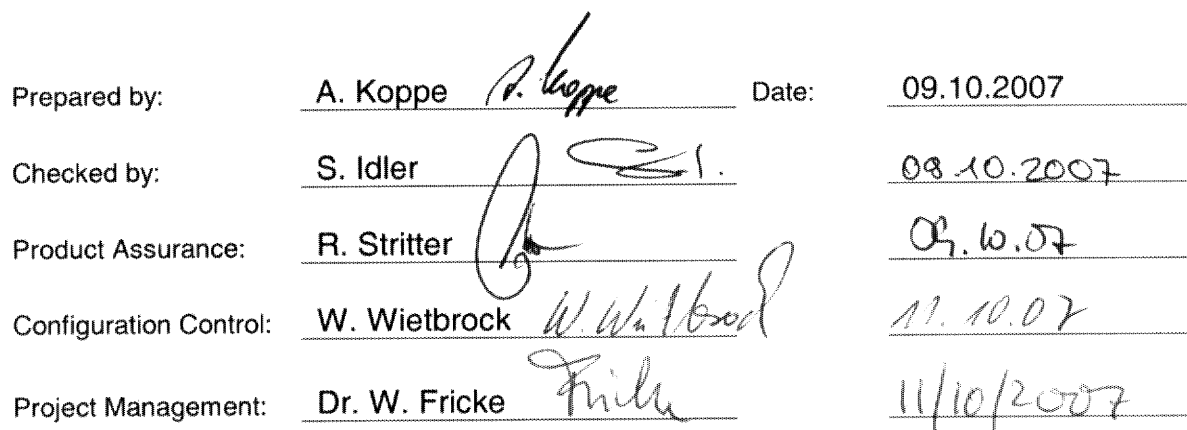 Prepared by: A. Koppe A. Koppe Date: 09.10.2007
Checked by: S. Idler 09.10.2007
Product Assurance: R. Stritter 09.10.07
Configuration Control: W. Wietbrock W. Wietbrock 11.10.07
Project Management: Dr. W. Fricke Fricke 11/10/2007